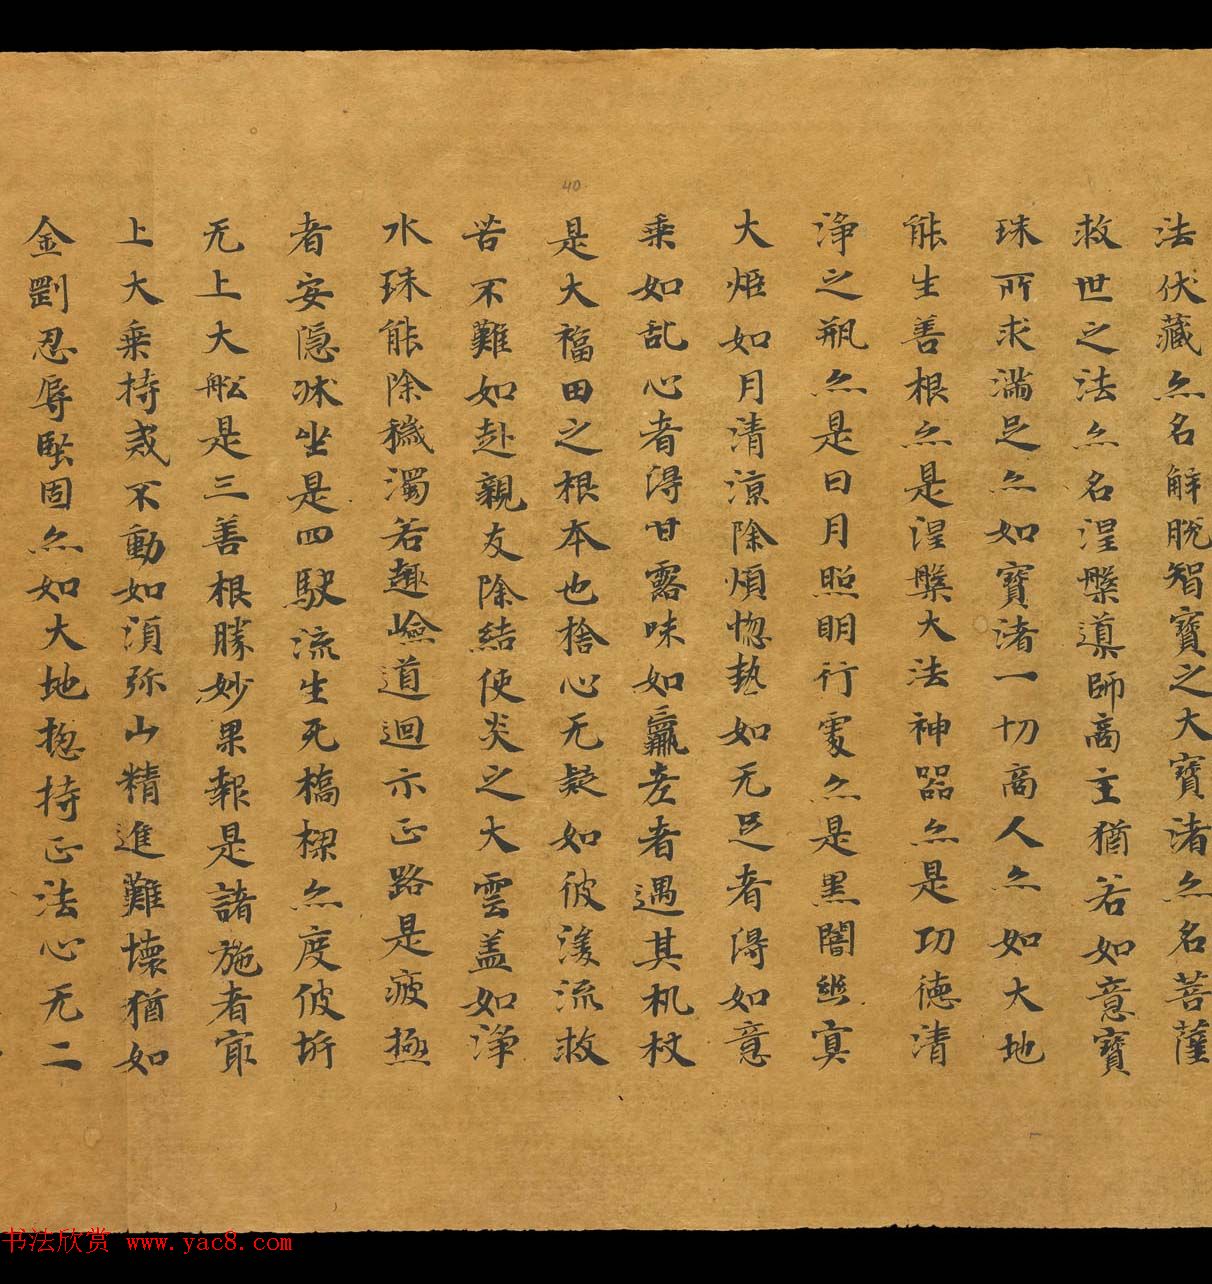 法伏藏亦名解脫智寶之大寶渚亦名菩薩
救世之法亦名涅槃導師商主猶若如意寶
珠所求滿足亦如寶渚一切商人亦如大地
能生善根亦是涅槃大法神器亦是功德清
淨之瓶亦是日月照明行處亦是黑闇幽冥
大炬如月清涼除煩惱熱如无足者得如意
乘如乱心者得甘露味如羸老者遇其机杖
是大福田之根本也捨心无疑如彼流救
苦不難如赴親友除結使炎之大雲盖如淨
水珠能除穢濁若趣嶮道迴示正路是疲極
者安隱床坐是四駛流生死橋樑亦度彼岸
无上大舩是三善根勝妙果報是諸施者㝡
上大乘持戒不動如湏弥山精進難壞猶如
金剛忍辱堅固亦如大地揔持正法心无二
40
书法欣赏 www.yac8.com